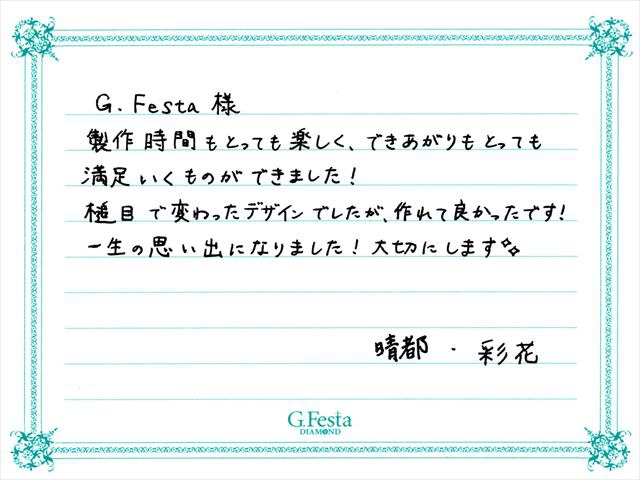 G.Festa 様
製作時間もとっても楽しく、できあがりもとっても
満足いくものができました!
槌目で変わったデザインでしたが、作れて良かったです!
一生の思い出になりました!大切にします✨
晴都・彩花
G.Festa
DIAMOND